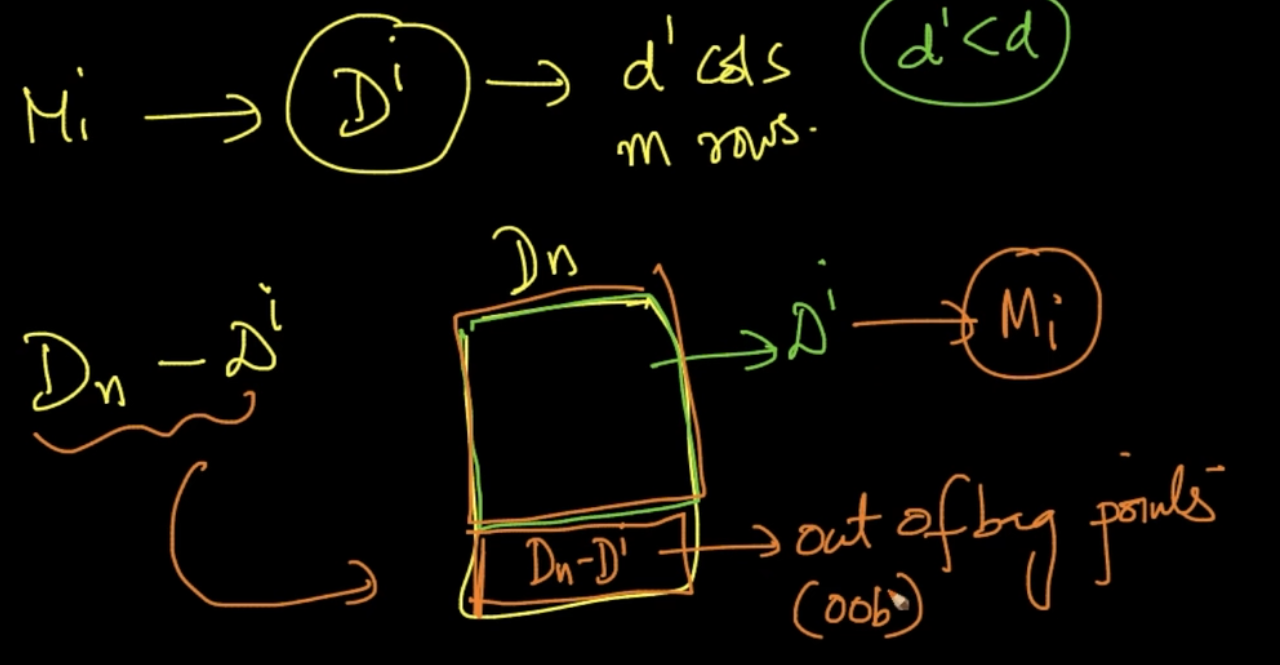 Mi → Dⁱ → d' cols d' < d
m rows.
Dn
Dn - Dⁱ
→ Dⁱ → Mi
Dn - Dⁱ → out of bag points
(oob)